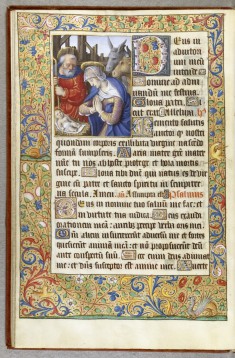 Deus in
adiutori
um meu
intende
Domine ad adiu
uandu me festina.
Gloria patri. Si
cut erat. Alleluya. hy
Memento salutis
auctor q nostri
quondam corporis ex illibata virgine nascedo
formam sumpseris. Maria mater gre mater
mie tu nos ab hoste protege et hora mortis
suscipe. Gloria tibi dne qui natus es de vir
gine cu patre et sancto spiritu in sempiter
na secula. Amen. an Assumpta est Psalmus
Deus in nomine tuo saluu me fac: et
in virtute tua iudica me. Deus exaudi
orationem mea: auribus percipe verba oris mei.
Qm alieni insurrexerut aduersu me et fortes
quesierut anima mea: et no proposuerut deu
ante conspectu suu. Ecce enim deus adiuuat
me: et dns susceptor est anime mee. Auerte